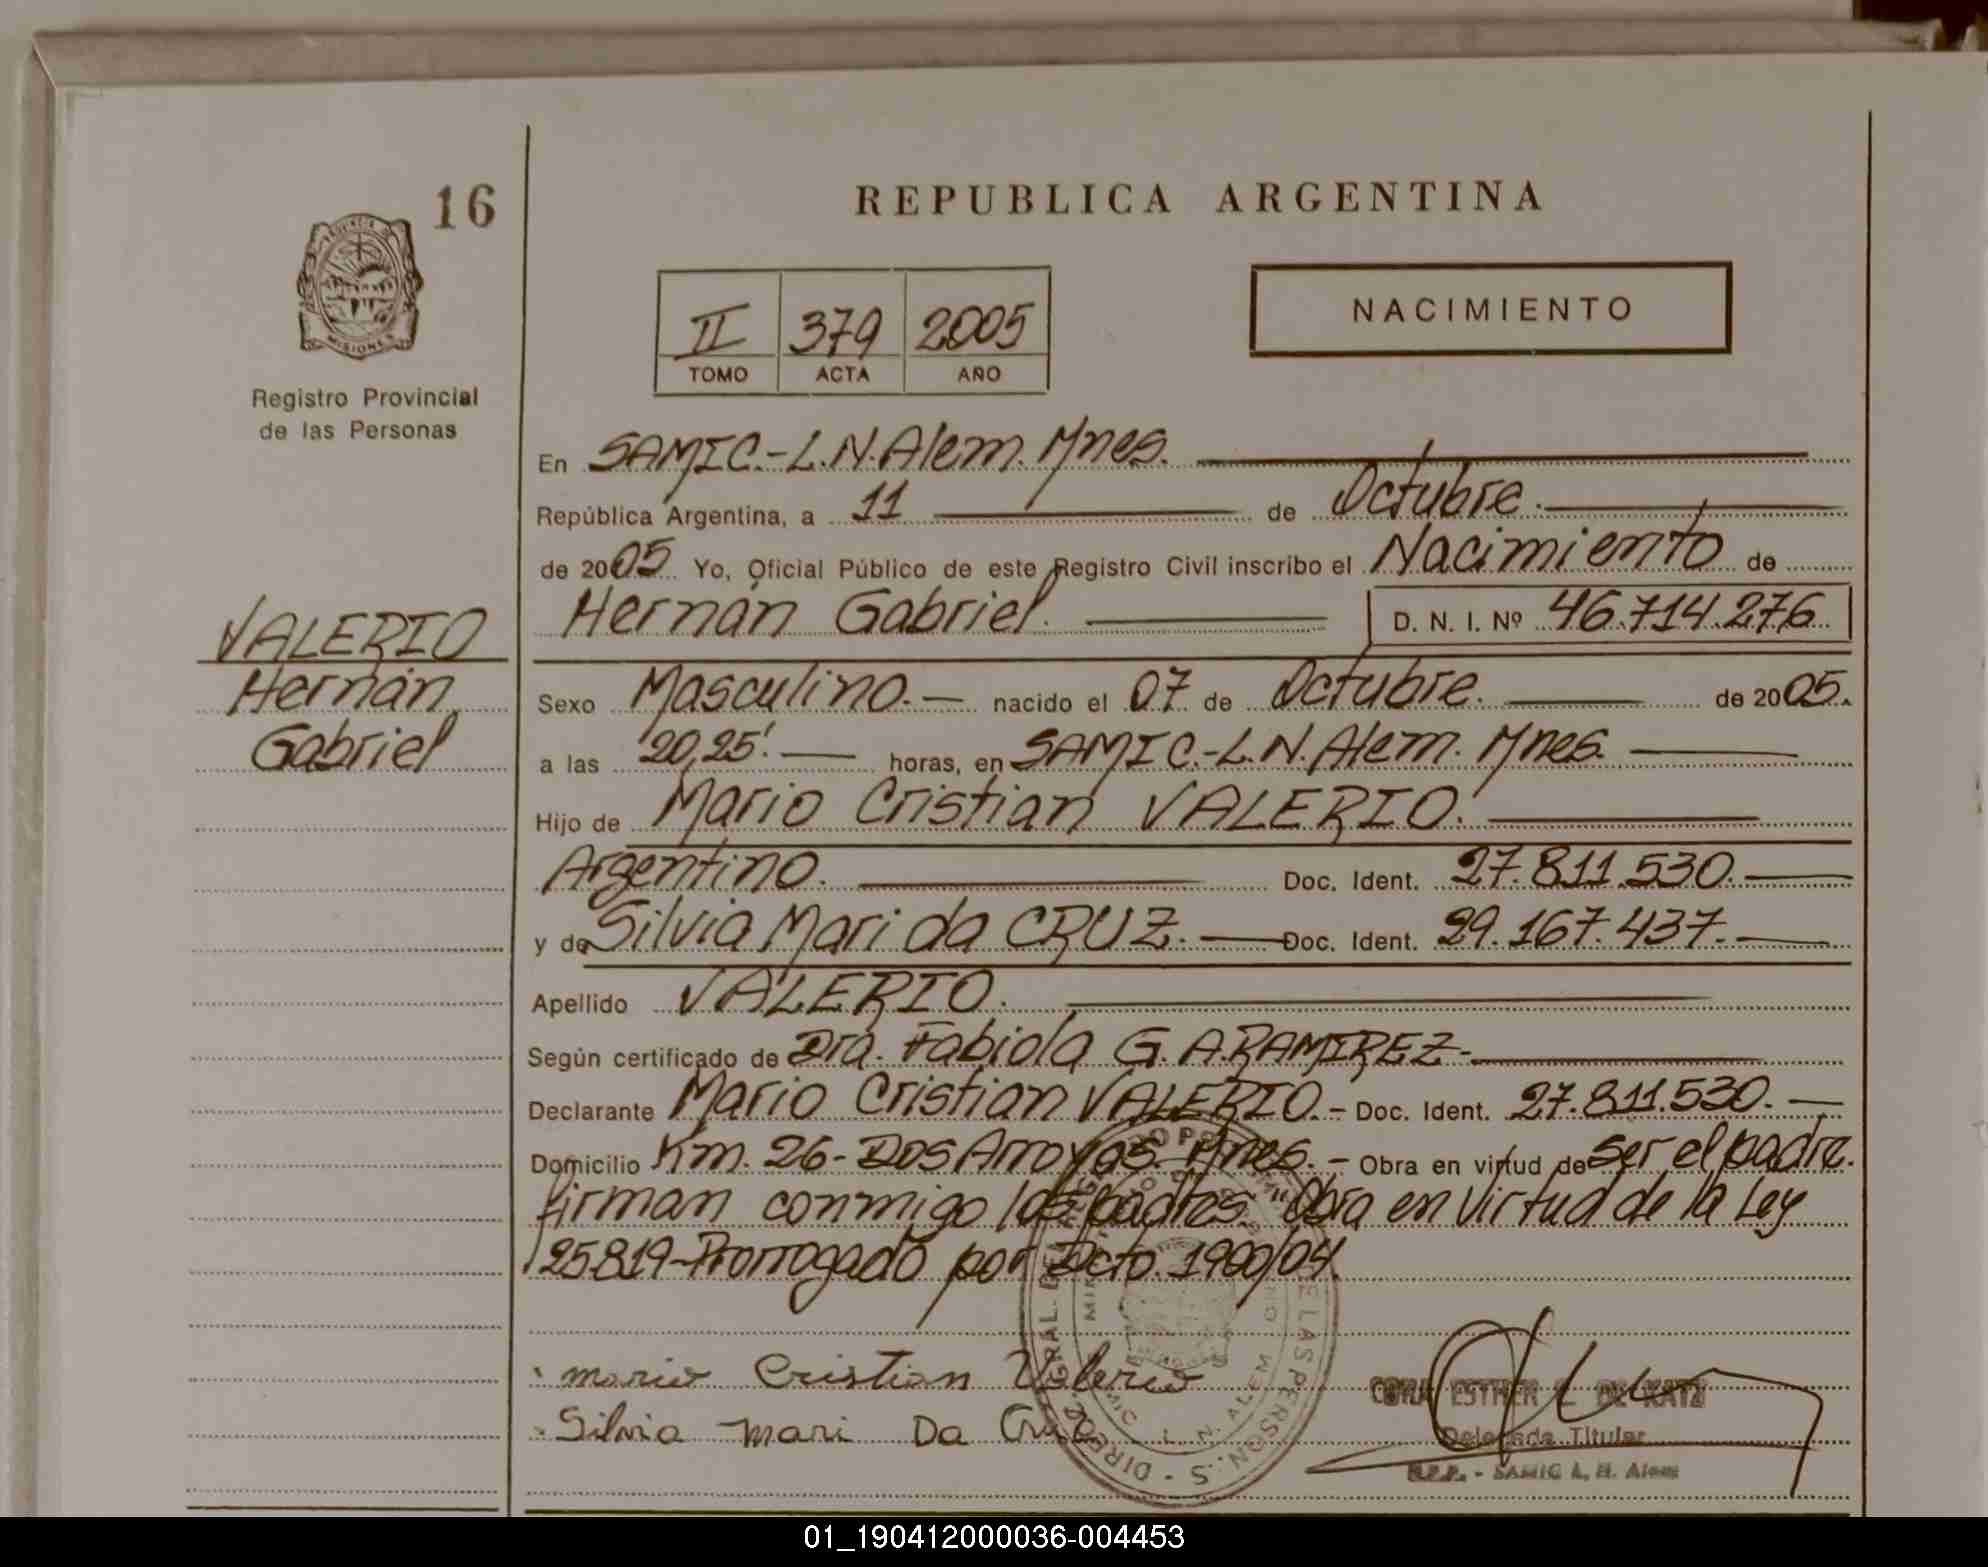 16
REPUBLICA ARGENTINA
MISIONES
Registro Provincial
de las Personas
II 379 2005
TOMO ACTA AÑO
NACIMIENTO
VALERIO
Hernán
Gabriel
En SAMIC.-L.N.Alem. Mnes.
República Argentina, a 11 de Octubre.
de 2005 Yo, Oficial Público de este Registro Civil inscribo el Nacimiento de
Hernán Gabriel. D. N. I. Nº 46.714.276
Sexo Masculino.- nacido el 07 de Octubre. de 2005.
a las 20,25' horas, en SAMIC.-L.N.Alem. Mnes.
Hijo de Mario Cristian VALERIO.
Argentino. Doc. Ident. 27.811.530.
y de Silvia Mari da CRUZ.- Doc. Ident. 29.167.437.-
Apellido VALERIO.
Según certificado de Dra. Fabiola G. A. RAMIREZ-
Declarante Mario Cristian VALERIO.- Doc. Ident. 27.811.530.-
Domicilio Km. 26-Dos Arroyos. Mnes.- Obra en virtud de ser el padre.
firman conmigo los padres. "Obra en Virtud de la Ley
25819-Prorrogado por Dcto. 1900/04.
mario Cristian Valerio
Silvia Mari Da Cruz
ESTHER DE KATZ
Delegada Titular
R.P.P. - SAMIC L. N. Alem
DE LAS PERSONAS
L. N. ALEM
01_190412000036-004453